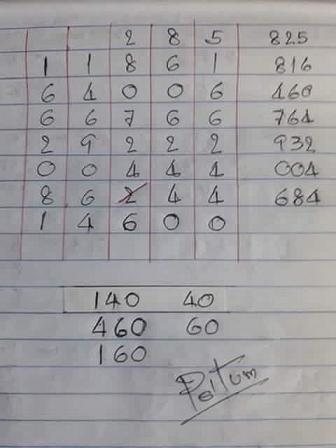 2 8 5 825
1 1 8 6 1 816
6 4 0 0 6 460
6 6 7 6 6 764
2 9 2 2 2 932
0 0 4 4 4 004
8 6 2 4 4 684
1 4 6 0 0
140 40
460 60
160